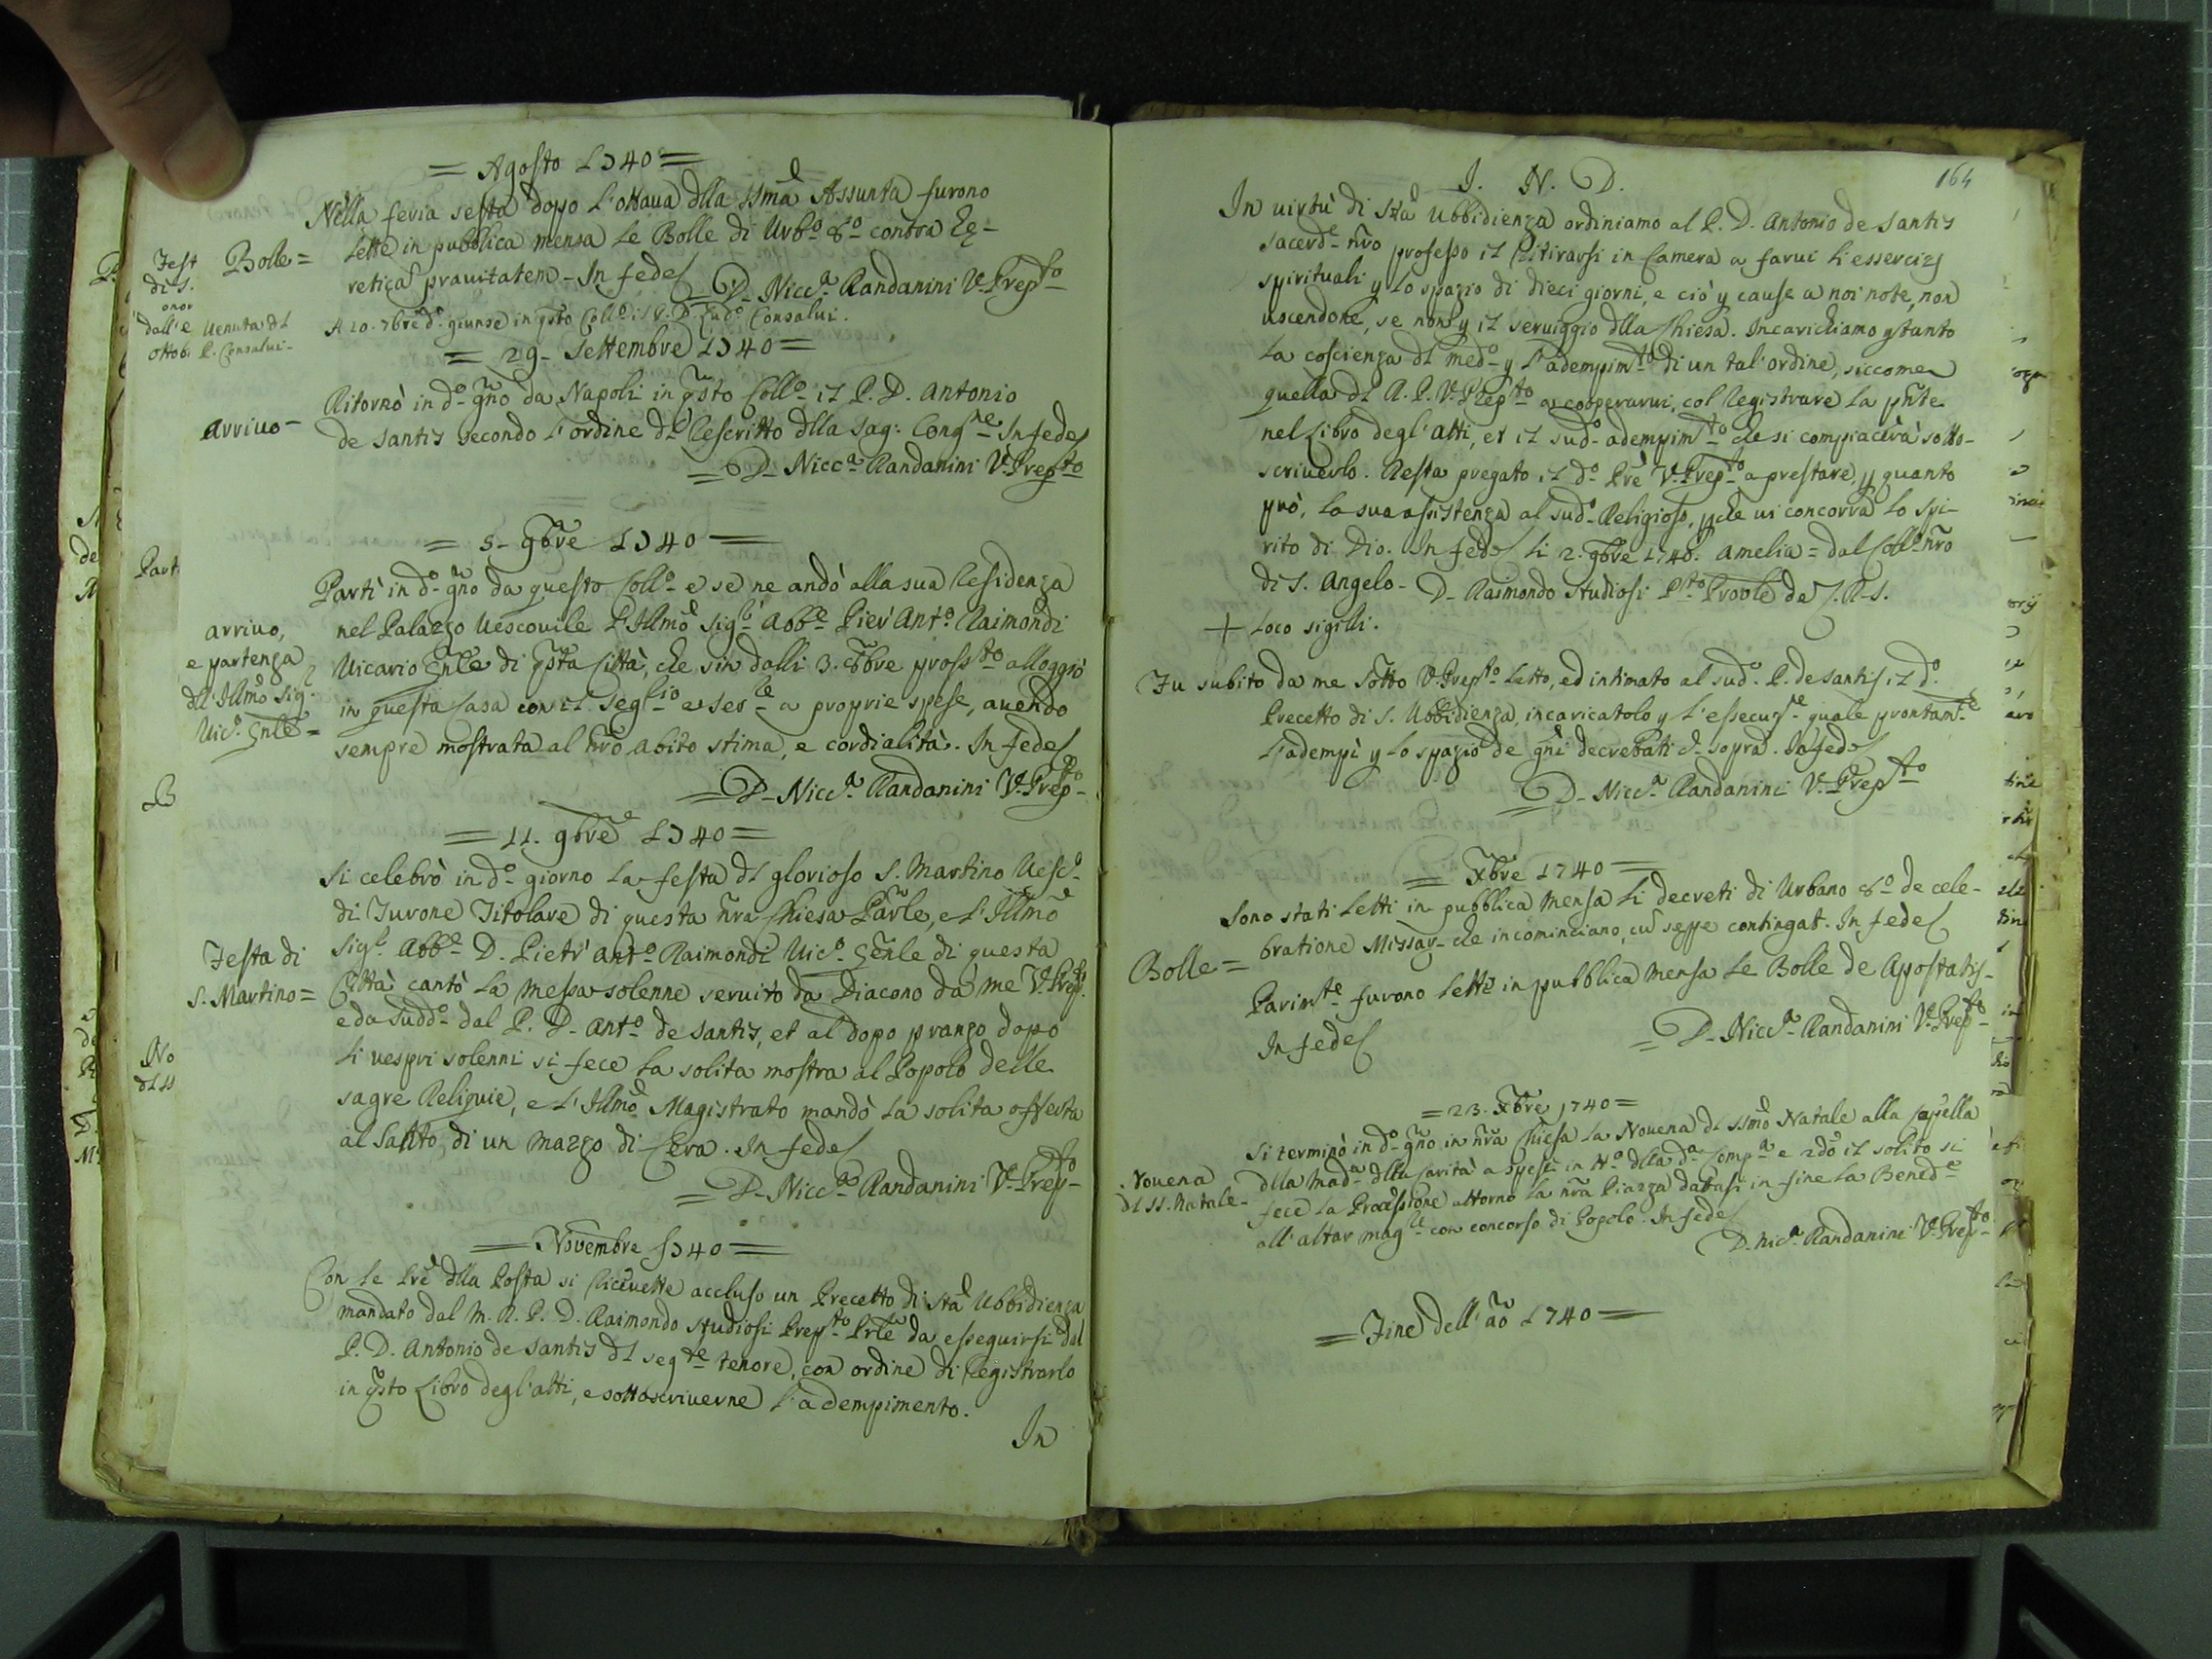 = Agosto 1740 =
Nella feria sesta dopo l'ottava dlla SSma Assunta furono
Bolle = lette in pubblica mensa le Bolle di Urbo 8o contra Ee-
retica pravitatem - In fede
D. Niccа Randanini V. Prepto
Venuta dl P. Consalvi - A 20. 7bre do giunse in qsto Collo il P. D. Consalvi.
= 29 - Settembre 1740 =
Ritornò in do gno da Napoli in qsto Collo il P. D. Antonio
Arrivo - de Santis secondo l'ordine dl Rescritto dlla Sag: Congne In fede
= D. Nicca Randanini V. Prepto
= 5 - 9bre 1740 =
Partì in do gno da questo Collo e se ne andò alla sua Residenza
arrivo, nel Palazzo Vescovile l'Illmo Sigr Abbe Pier' Anto Raimondi
e partenza Vicario Gnle di qsta Città, che sin dalli 3. 8bre prossto alloggiò
dll' Illmo Sigr in questa Casa con il Seglio e a proprie spese, avendo
Vico Gnle = sempre mostrata al nro abito stima, e cordialità. In fede
= D. Nicca Randanini V. Prepto
= 11. 9bre 1740 =
Si celebrò in do giorno la festa dl glorioso S. Martino Vesco
di Turone Titolare di questa nra Chiesa Parle, e l'Illmo
Festa di Sigr Abbe D. Pietr' Anto Raimondi Vico Genle di questa
S. Martino = Città cantò la Messa solenne servito da Diacono da me V. Prepto
e da Suddo dal P. D. Anto de Santis, et al dopo pranzo dopo
li vespri solenni si fece la solita mostra al Popolo delle
sagre Reliquie, e l'Illmo Magistrato mandò la solita offerta
al Santo, di un mazzo di Cera. In fede
= D. Nicca Randanini V. Prepto
= Novembre 1740 =
Con le Lre dlla Posta si ricevette accluso un Precetto di Sta Ubbidienza
mandato dal M. R. P. D. Raimondo Studiosi Prepto Prle da esseguirsi dal
P. D. Antonio de Santis dl segte tenore, con ordine di registrarlo
in qsto Libro degl'atti, e sottoscriverne l'adempimento.
In
164
J. N. D.
In virtù di Sta Ubbidienza ordiniamo al P. D. Antonio de Santis
Sacerde nro professo il ritirarsi in Camera a farvi li essercizj
spirituali p lo spazio di dieci giorni, e ciò p cause a noi note, non
uscendone, se non p il serviggio dlla Chiesa. Incarichiamo ptanto
la coscienza dl medo p l'adempimto di un tal'ordine, siccome
quella dl R. P. V. Prepto a cooperarvi, col registrare la pnte
nel Libro degl'atti, et il sudo adempimto che si compiacerà sotto-
scriverlo. Resta pregato il do Pre V. Prepto a prestare, p quanto
può, la sua assistenza al sudo Religioso, pche vi concorra lo Spi-
rito di Dio. In fede li 2. 9bre 1740. Amelia = dal Collo nro
di S. Angelo - D. Raimondo Studiosi Pto Provle de C. R. S.
+ Loco sigilli.
Fu subito da me sotto V. Prepto letto, ed intimato al sudo P. de Santis il do
Precetto di S. Ubbidienza, incaricatolo p l'essecuzne quale prontamte
l'adempì p lo spazio de gni decretati d. sopra. In fede
= D. Nicca Randanini V. Prepto
= Xbre 1740 =
Sono stati letti in pubblica mensa li decreti di Urbano 8o de cele-
Bolle = bratione Missar che incominciano, cu sepe contingat. In fede
Parimte furono lette in pubblica mensa le Bolle de Apostatis -
In fede
= D. Nicca Randanini V. Prepto
= 23. Xbre 1740 =
Si terminò in do gno in nra Chiesa la Novena dl SSmo Natale alla Cappella
Novena dlla Mada dlla Carità a spese in dlla da Compa e 2do il solito si
dl SS. Natale - fece la Processione attorno la nra Piazza datasi in fine la Benede
all'altar magle con concorso di Popolo. In fede
D. Nica Randanini V. Prepto
= Fine dell'ao 1740 =